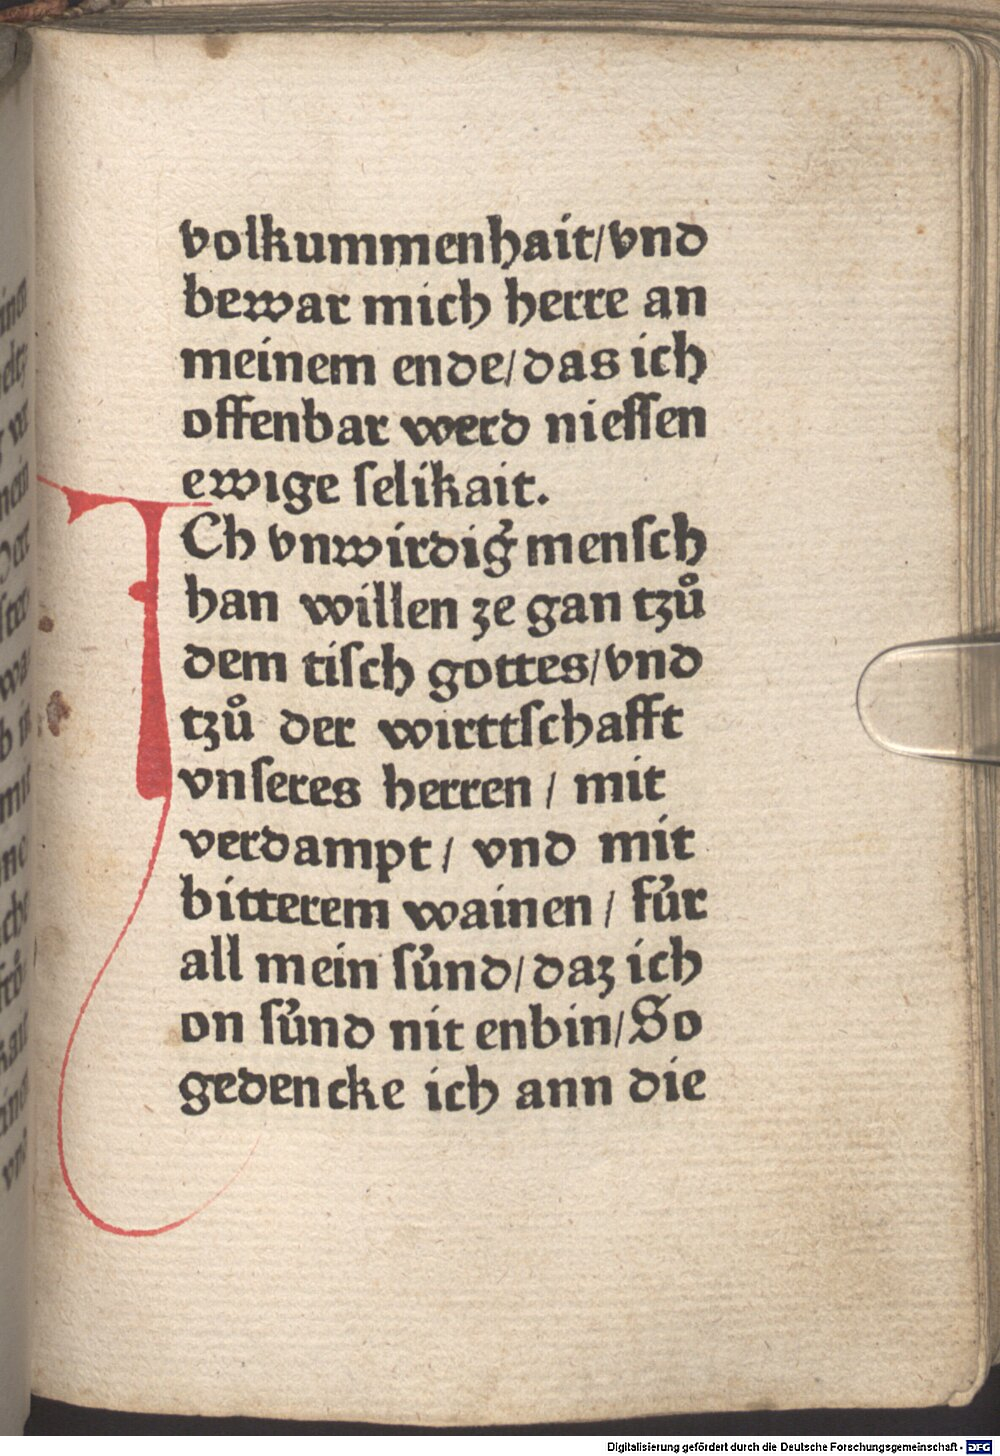 volkummenhait/vnd
bewar mich herre an
meinem ende/das ich
offenbar werd nieſſen
ewige ſelikait.
ICh vnwirdig̉ menſch
han willen ze gan tzů
dem tiſch gottes/vnd
tzů der wirttſchafft
vnſeres herren / mit
verdampt / vnd mit
bitterem wainen / fu̓r
all mein ſu̓nd/daz ich
on ſu̓nd nit enbin/So
gedencke ich ann die
Digitalisierung gefördert durch die Deutsche Forschungsgemeinschaft - DFG